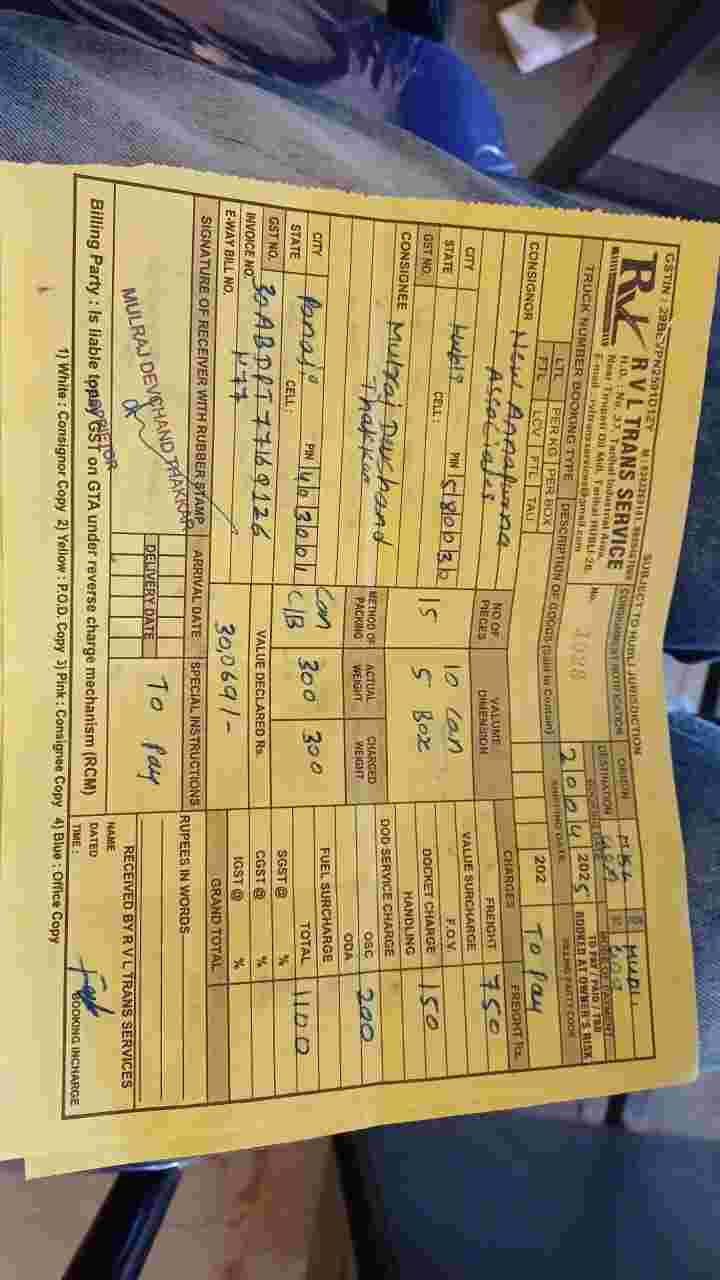 SUBJECT TO HUBLI JURISDICTION
RVL TRANS SERVICE
H.O. : No. 37, Tarihal Industrial Area,
Near Tirupati Oil Mill, Tarihal HUBLI-26.
E-mail : rvltransservices@gmail.com
CONSIGNMENT NOTIFICATION
No. 2028
ORIGIN HBL HUBLI
DESTINATION GOA
MODE OF PAYMENT
TO PAY / PAID / TBB
BOOKED AT OWNER'S RISK
TRUCK NUMBER BOOKING TYPE
DESCRIPTION OF GOODS (Said to Contain)
2004 2025
BILLING PARTY CODE
LTL PER KG PER BOX
FTL LCV FTL TAU
202
To Pay
CONSIGNOR New Annapurna
Associates
CITY Hubli
STATE CELL : PIN 580030
GST NO.
NO OF PIECES
VALUME DIMENSION
15
10 Can
5 Box
CONSIGNEE Mulraj Devchand
Thakkar
METHOD OF PACKING
ACTUAL WEIGHT
CHARGED WEIGHT
Can
C/B
300
300
CITY Panaji
STATE CELL : PIN 403001
GST NO. 30ABDPT7716Q1Z6
INVOICE NO. H77
E-WAY BILL NO.
VALUE DECLARED Rs.
30069/-
CHARGES FREIGHT Rs.
FREIGHT 750
VALUE SURCHARGE
F.O.V.
DOCKET CHARGE 150
HANDLING
DOD SERVICE CHARGE
OSC 200
ODA
FUEL SURCHARGE
TOTAL 1100
SGST @ %
CGST @ %
IGST @ %
GRAND TOTAL
SIGNATURE OF RECEIVER WITH RUBBER STAMP
ARRIVAL DATE
SPECIAL INSTRUCTIONS
RUPEES IN WORDS
MULRAJ DEVCHAND THAKKAR
PROPRIETOR
DELIVERY DATE
To Pay
RECEIVED BY R V L TRANS SERVICES
NAME
DATED
TIME :
BOOKING INCHARGE
Billing Party : Is liable topay GST on GTA under reverse charge mechanism (RCM)
1) White : Consignor Copy 2) Yellow : P.O.D. Copy 3) Pink : Consignee Copy 4) Blue : Office Copy